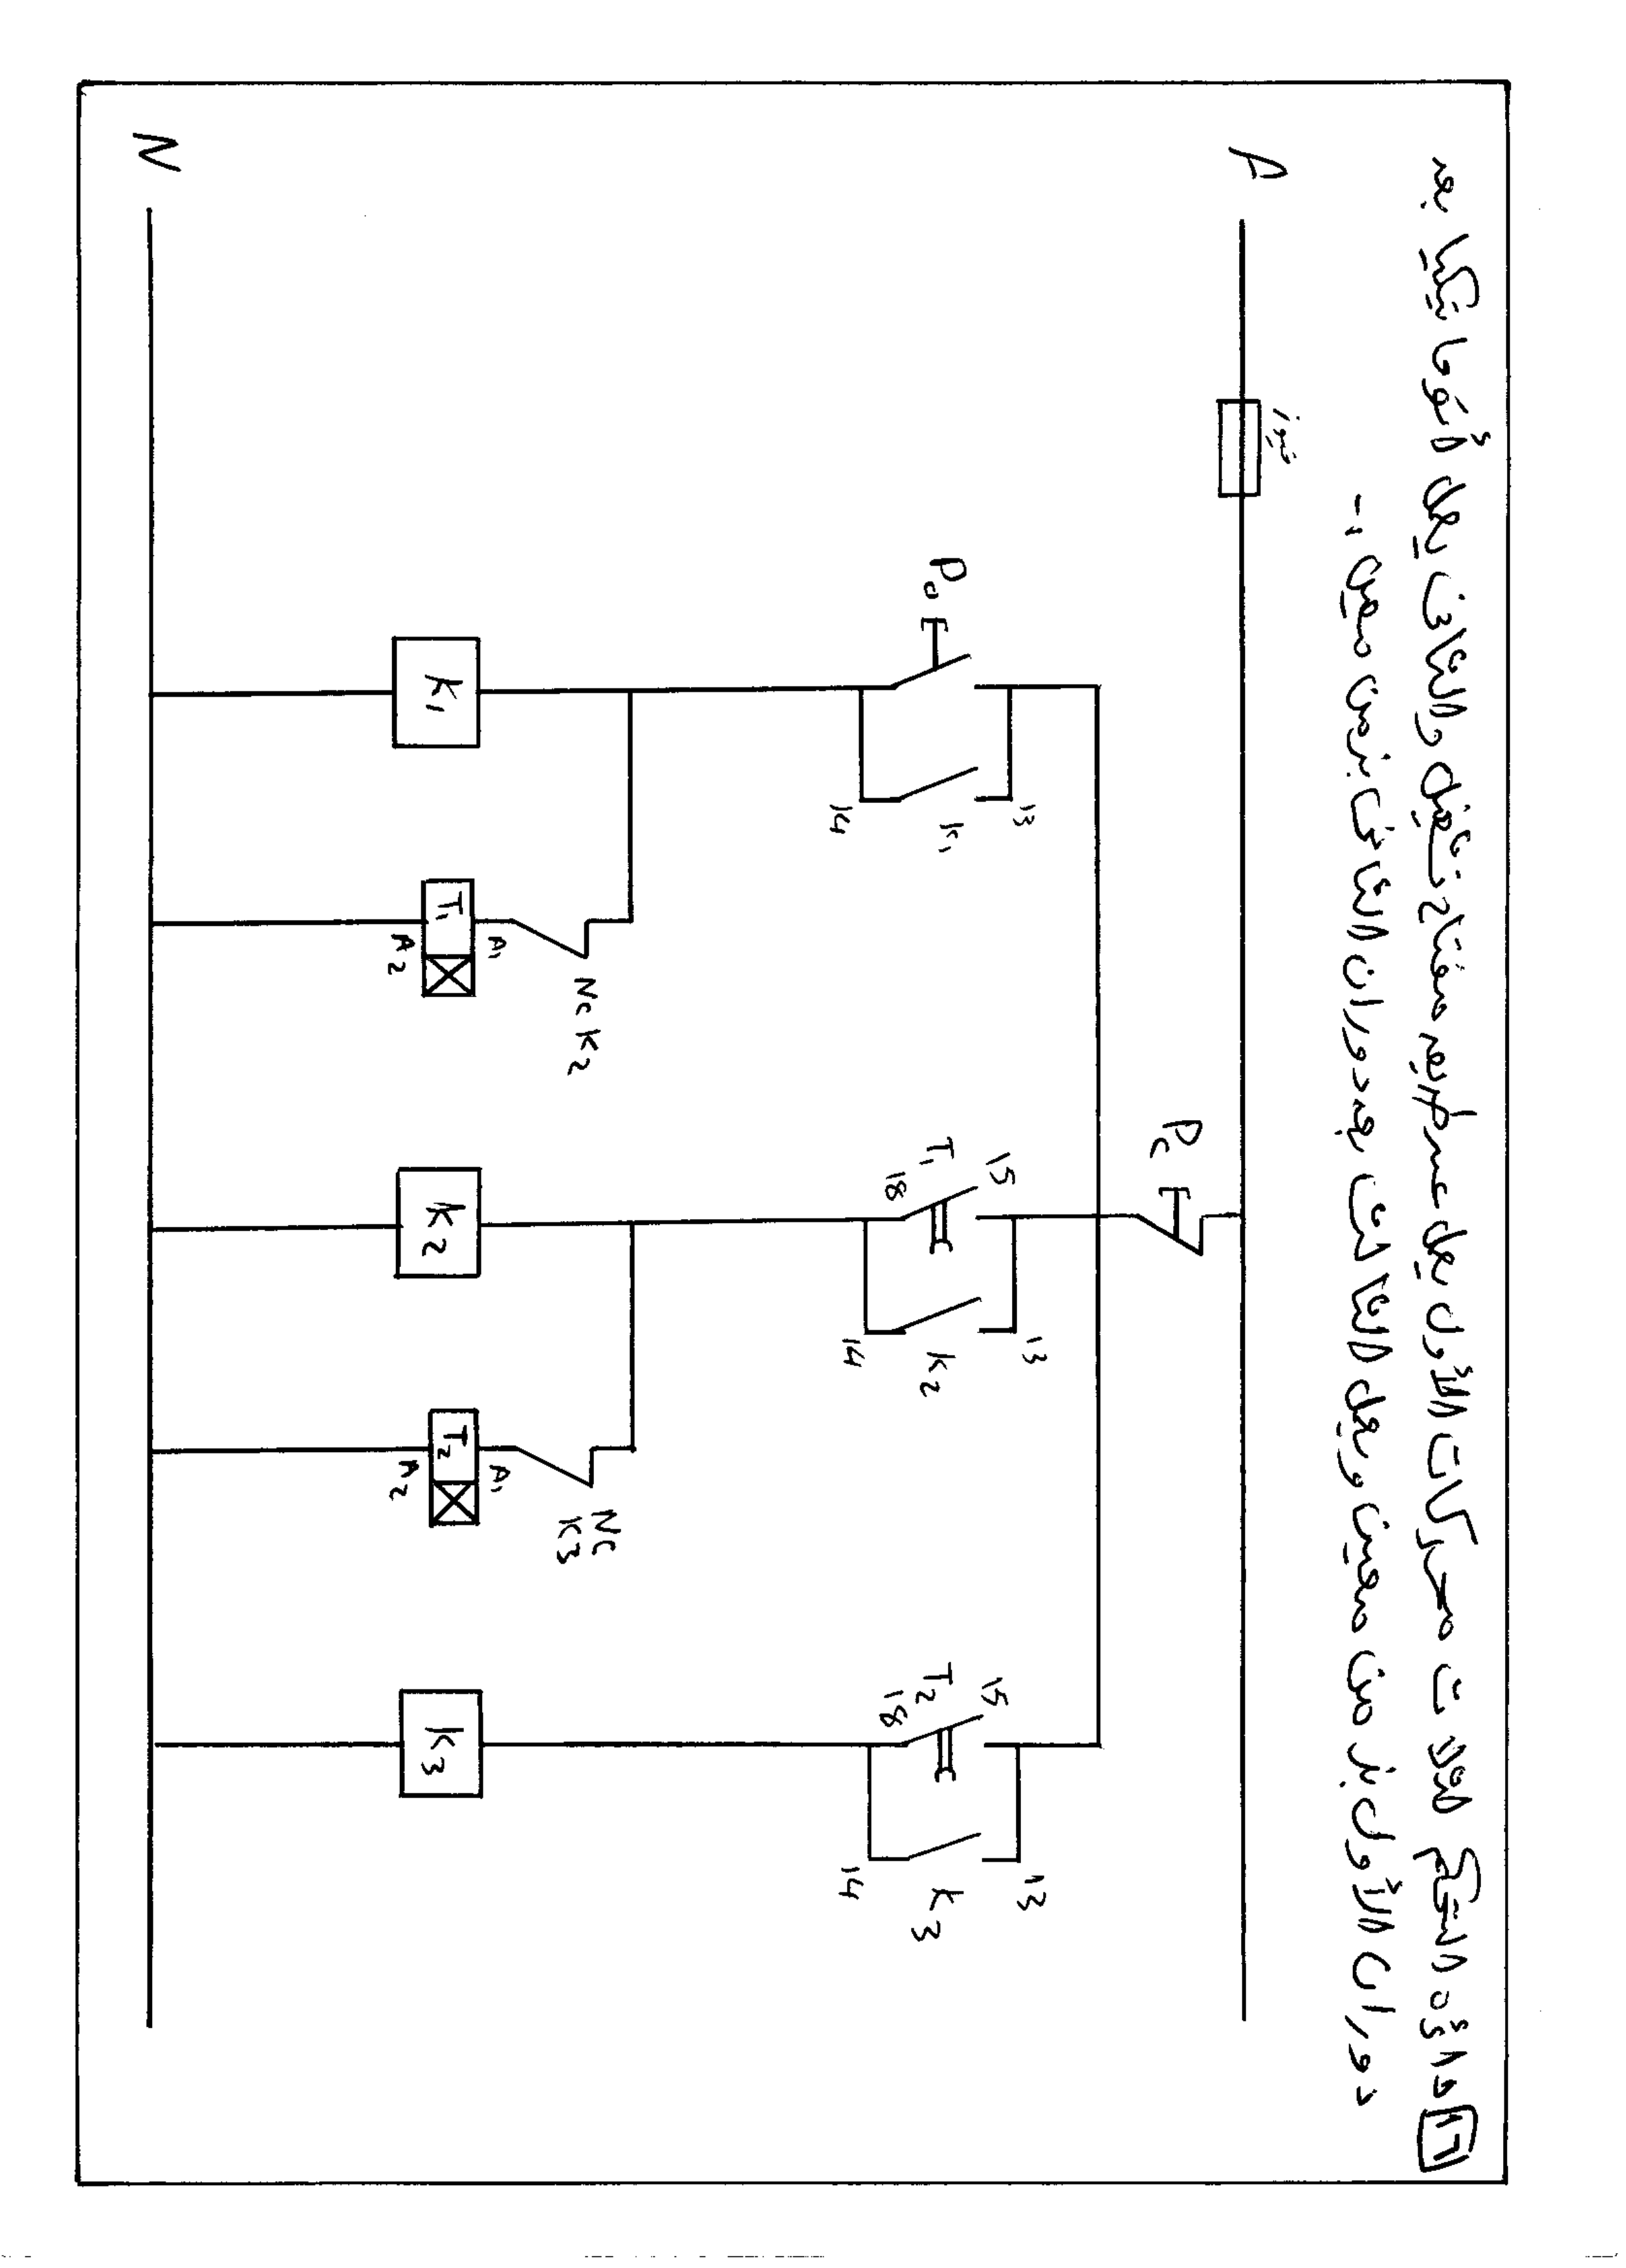 ١٦ دائرة التحكم لثلاث محركات الأول يعمل عن طريق مفتاح تشغيل والثاني يعمل أتوماتيكيا بعد
دوران الأول بزمن معين ويعمل الثالث بعد دوران الثاني بزمن معين :-
فيوز
N
Pc
Po
13
K1
14
15
T1
18
13
K2
14
15
T2
18
13
K3
14
NC K2
NC
K3
K1
T1
A1
A2
K2
T2
A1
A2
K3